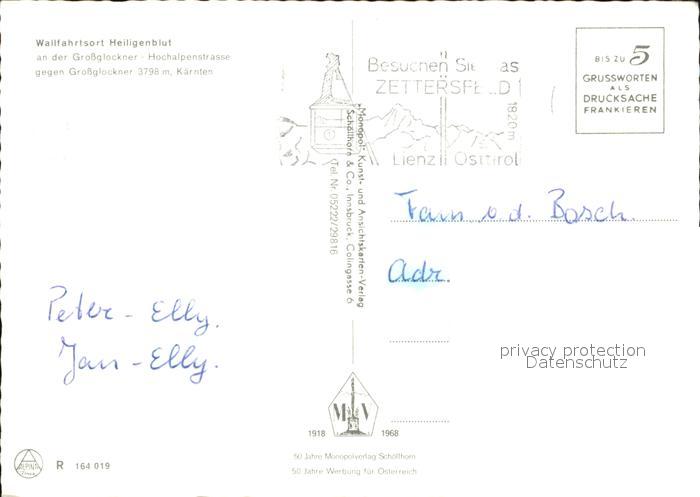 Wallfahrtsort Heiligenblut
an der Großglockner - Hochalpenstrasse
gegen Großglockner 3798 m, Kärnten
Besuchen Sie das
ZETTERSFELD
1820 m
Lienz Osttirol
BIS ZU 5
GRUSSWORTEN
ALS
DRUCKSACHE
FRANKIEREN
„Monopol“ Kunst- und Ansichtskarten-Verlag
Schöllhorn & Co., Innsbruck, Colingasse 6
Tel. Nr. 05222/29816
Fam v. d. Bosch.
Adr.
Peter - Elly.
Jan - Elly.
privacy protection
Datenschutz
M V
1918 1968
50 Jahre Monopolverlag Schöllhorn
50 Jahre Werbung für Österreich
ALPINA
R 164 019